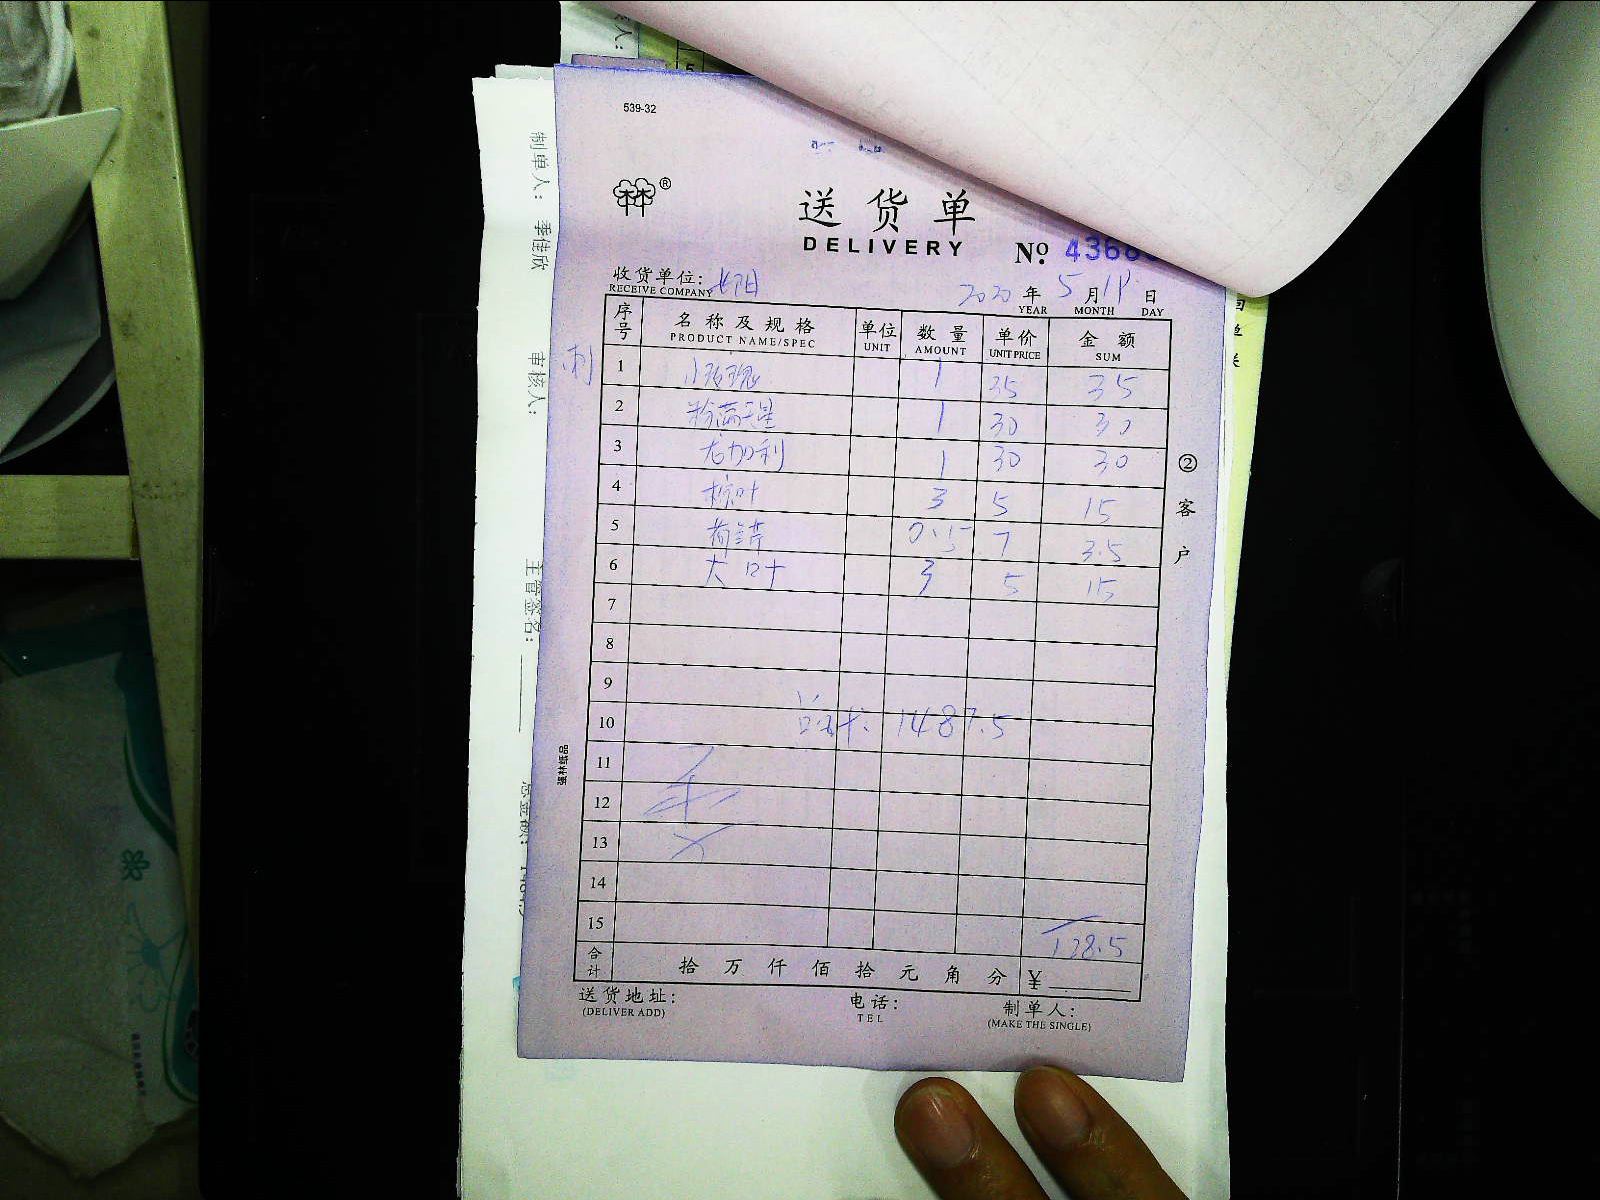 539-32
®
送货单
DELIVERY
No. 4368
收货单位:
RECEIVE COMPANY
2020 年 5 月 18 日
YEAR MONTH DAY
序号 名称及规格 单位 数量 单价 金额
PRODUCT NAME/SPEC UNIT AMOUNT UNIT PRICE SUM
刺
1 小玫瑰 1 35 35
2 粉满天星 1 30 30
3 尤加利 1 30 30
4 棕叶 3 5 15
5 0.5 7 3.5
6 大叶 3 5 15
7
8
9
10 总计: 1487.5
11
12
13
14
15 128.5
合计 拾 万 仟 佰 拾 元 角 分 ¥
送货地址: 电话: 制单人:
(DELIVER ADD) TEL (MAKE THE SINGLE)
② 客户
强林纸品
制单人: 季佳欣
审核人:
主管签名: